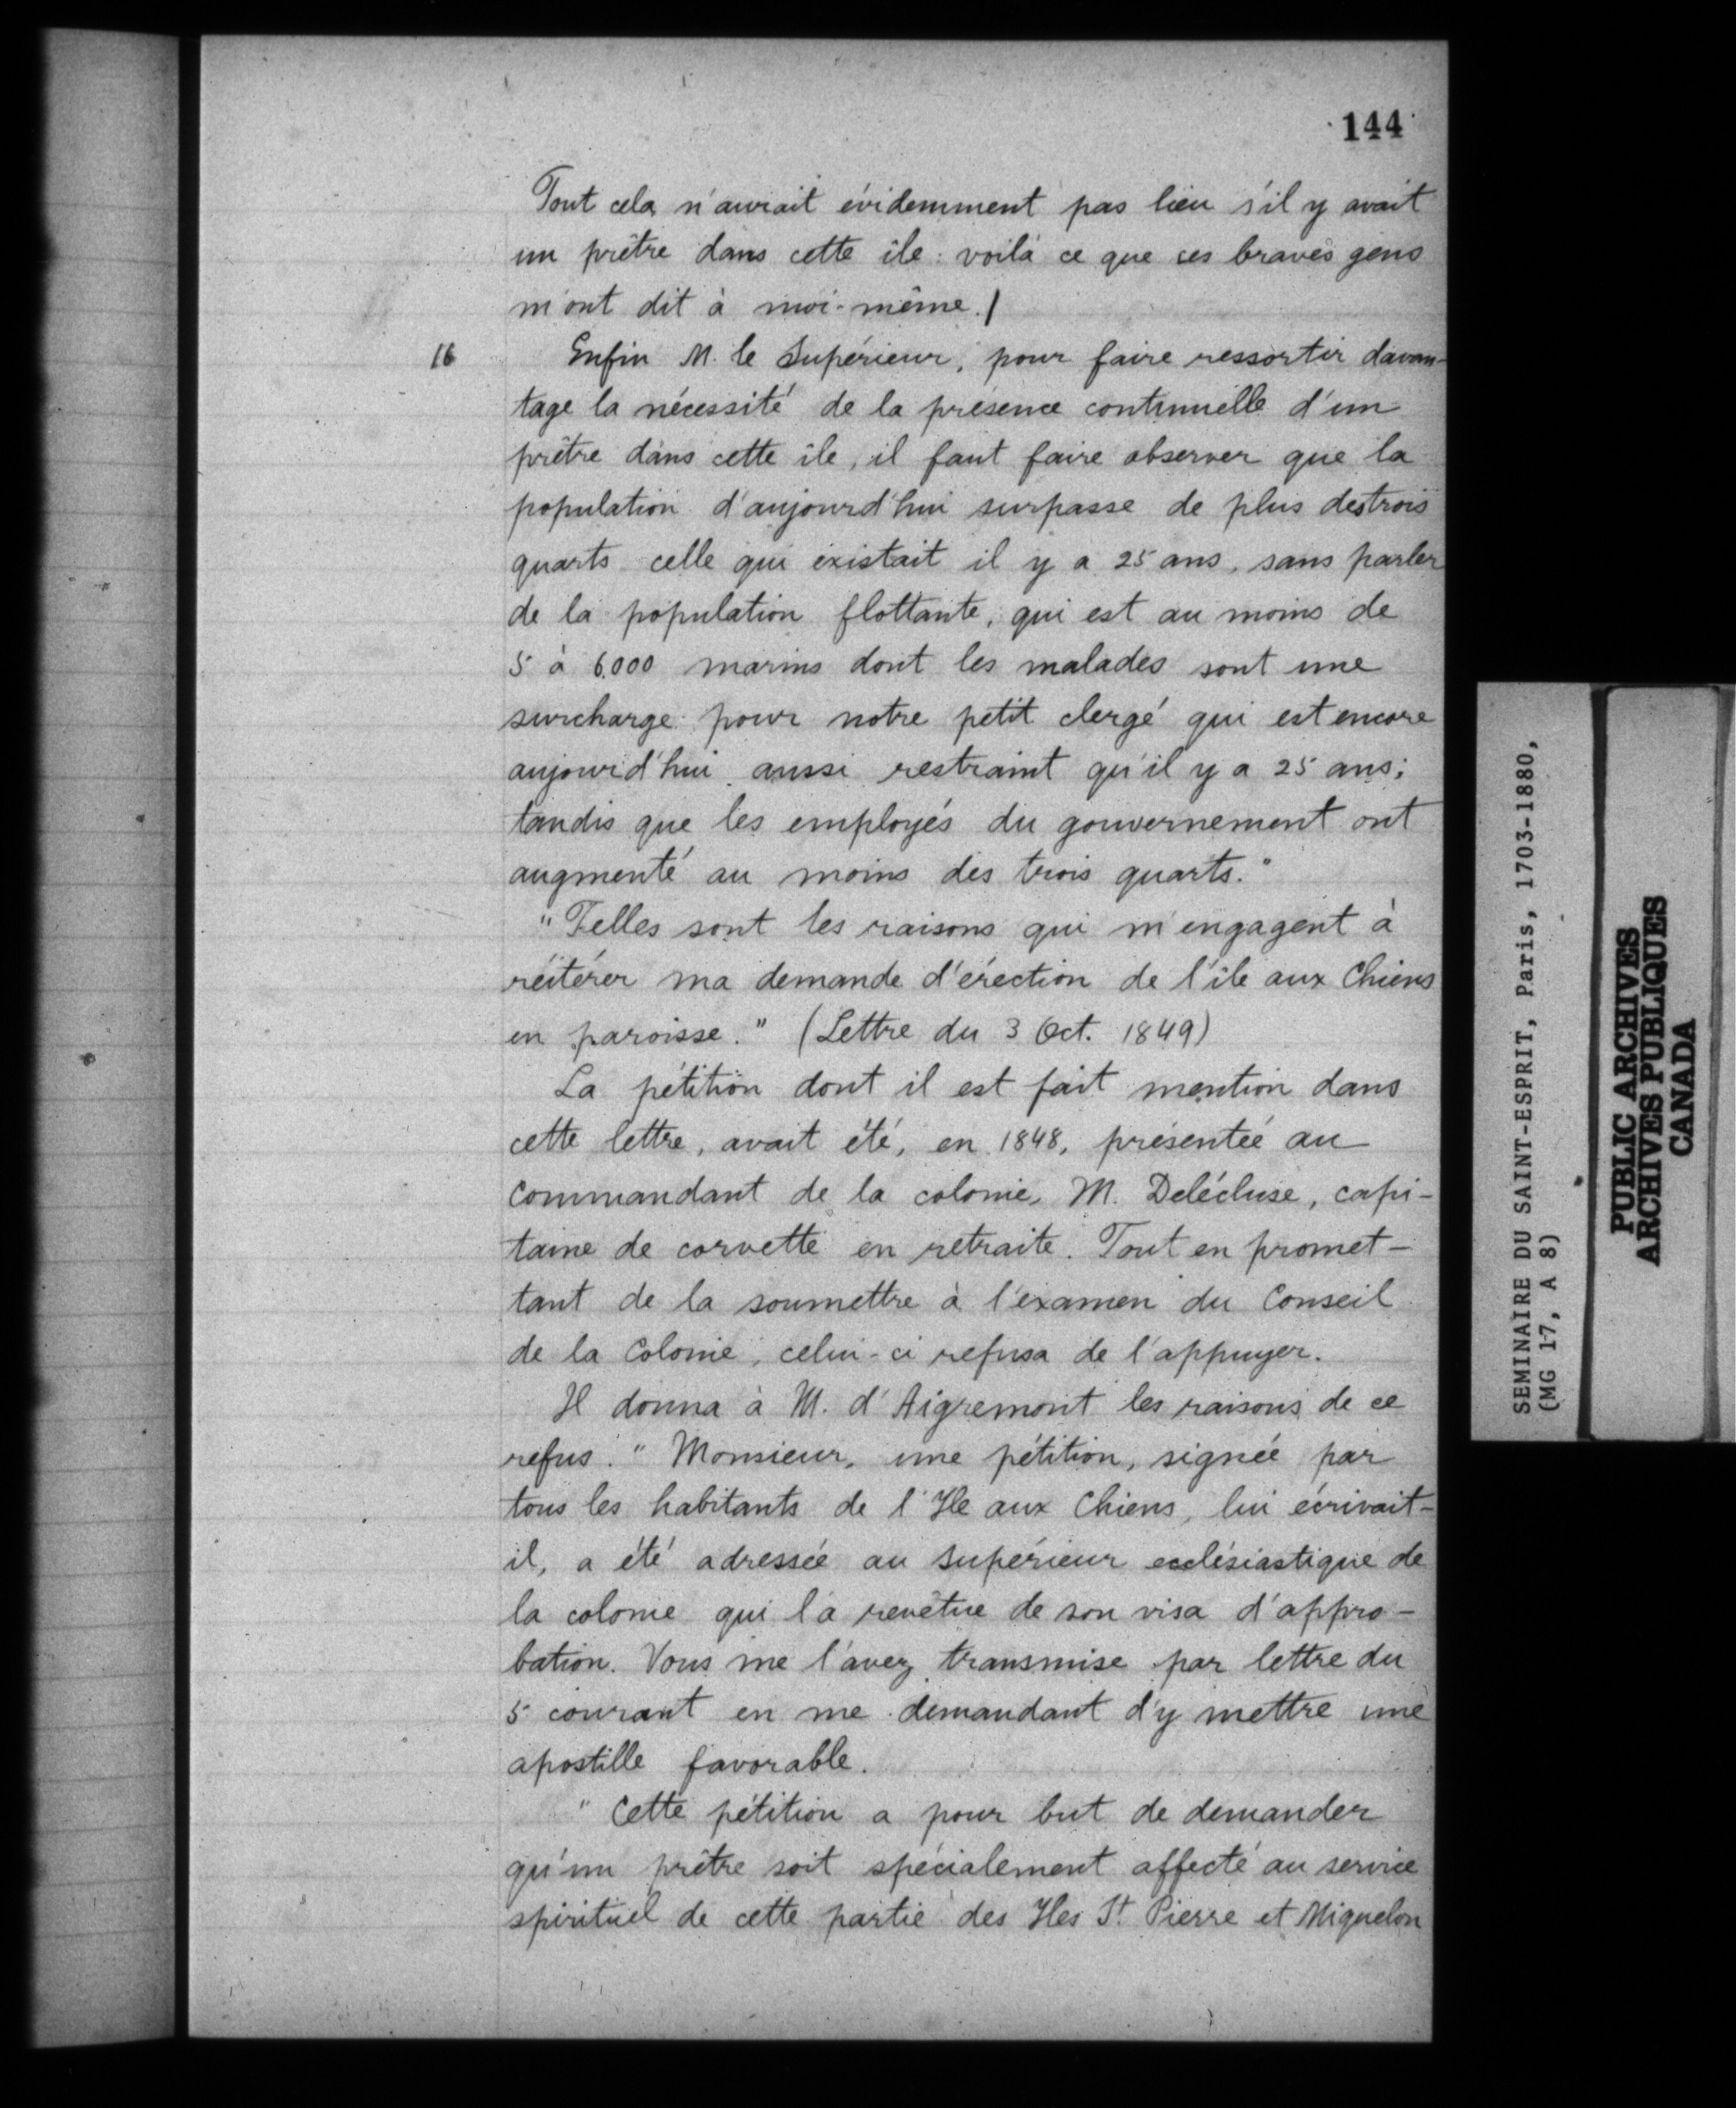 144
Tout cela n'aurait évidemment pas lieu s'il y avait
un prêtre dans cette île : voilà ce que ces braves gens
m'ont dit à moi-même./
16
Enfin M. le Supérieur, pour faire ressortir davan-
tage la nécessité de la présence continuelle d'un
prêtre dans cette île, il faut faire observer que la
population d'aujourd'hui surpasse de plus des trois
quarts celle qui existait il y a 25 ans, sans parler
de la population flottante, qui est au moins de
5 à 6.000 marins dont les malades sont une
surcharge pour notre petit clergé qui est encore
aujourd'hui aussi restraint qu'il y a 25 ans;
tandis que les employés du gouvernement ont
augmenté au moins des trois quarts."
"Telles sont les raisons qui m'engagent à
réitérer ma demande d'érection de l'île aux Chiens
en paroisse." (Lettre du 3 Oct. 1849)
La pétition dont il est fait mention dans
cette lettre, avait été, en 1848, présentée au
Commandant de la colonie, M. Delécluse, capi-
taine de corvette en retraite. Tout en promet-
tant de la soumettre à l'examen du Conseil
de la Colonie, celui-ci refusa de l'appuyer.
Il donna à M. d'Aigremont les raisons de ce
refus. "Monsieur, une pétition, signée par
tous les habitants de l'Ile aux Chiens, lui écrivait-
il, a été adressée au Supérieur ecclésiastique de
la colonie qui l'a revêtue de son visa d'appro-
bation. Vous me l'avez transmise par lettre du
5 courant en me demandant d'y mettre une
apostille favorable.
"Cette pétition a pour but de demander
qu'un prêtre soit spécialement affecté au service
spirituel de cette partie des Iles St. Pierre et Miquelon
SEMINAIRE DU SAINT-ESPRIT, Paris, 1703-1880,
(MG 17, A 8)
PUBLIC ARCHIVES
ARCHIVES PUBLIQUES
CANADA